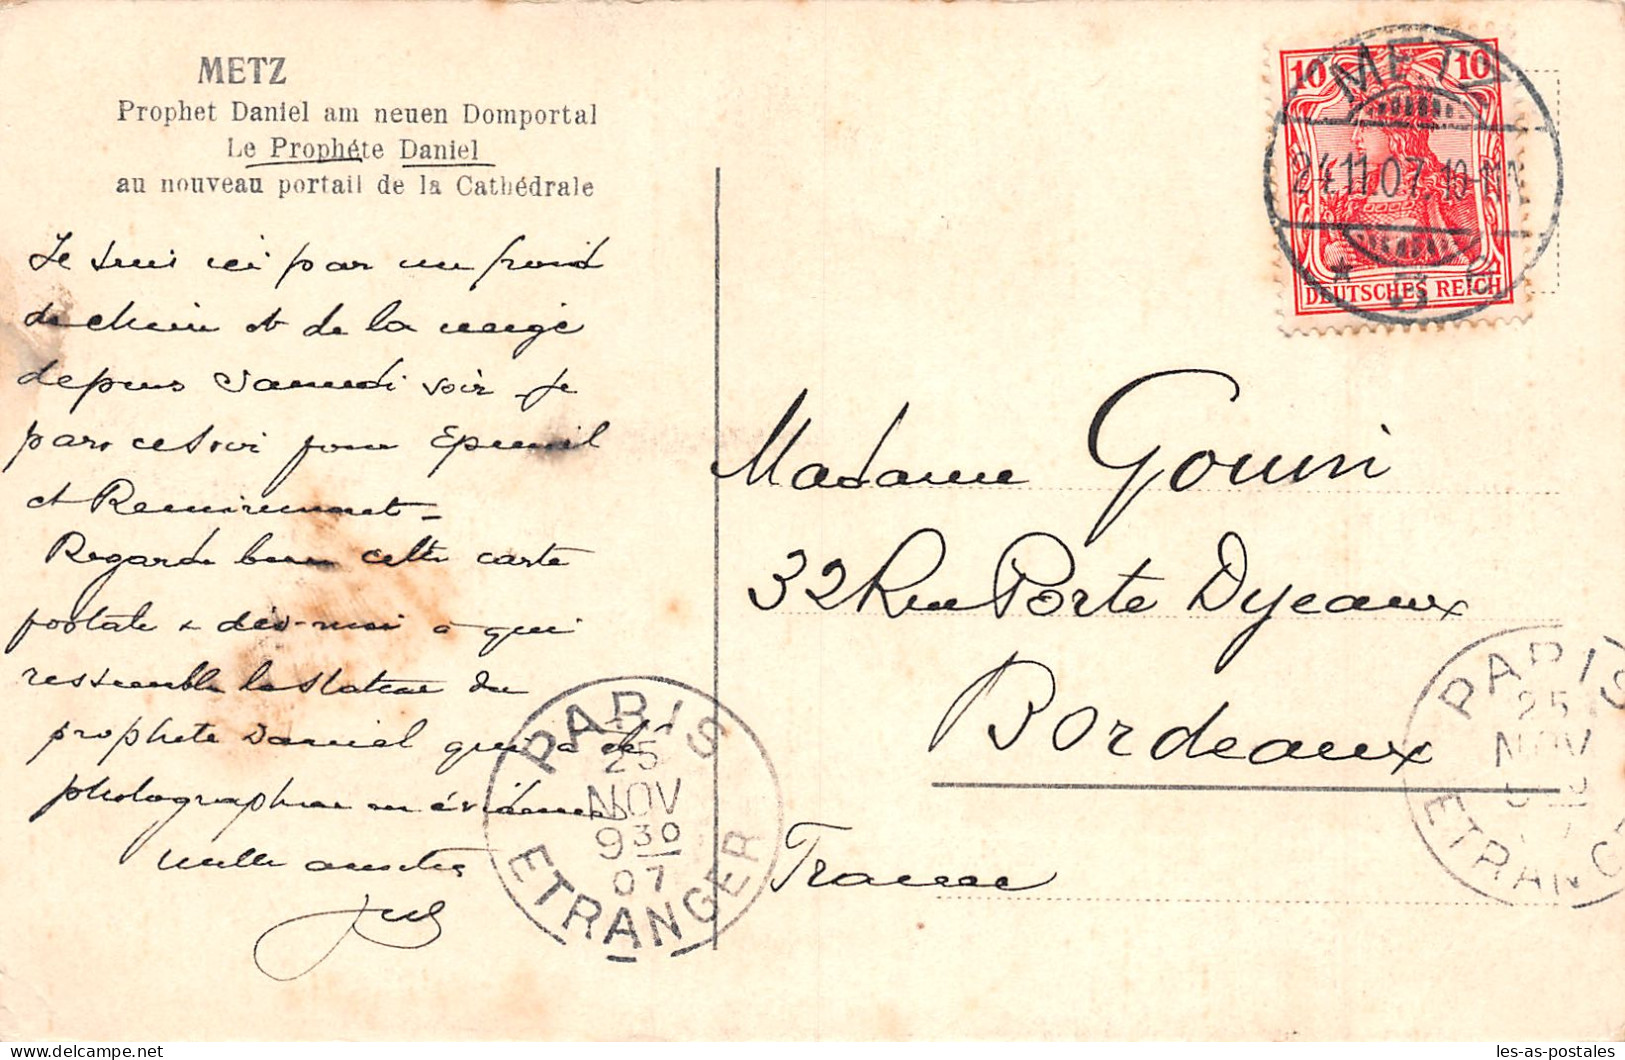 METZ
Prophet Daniel am neuen Domportal
Le Prophéte Daniel
au nouveau portail de la Cathédrale
Je suis ici par un froid
de chien et de la neige
depuis Samedi soir Je
pars ce soir pour Epernil
et Remiremont -
Regarde bien cette carte
postale & dis-moi à qui
ressemble la statue du
prophète Daniel qui a été
photographiée en évidence
mille amitiés
10 10
METZ
24.11.07.10-11
DEUTSCHES REICH
Madame Gouin
32 Rue Porte Dijeaux
Bordeaux
France
PARIS
25
NOV
9 30
07
ETRANGER
PARIS
25
NOV
ETRANGER
les-as-postales